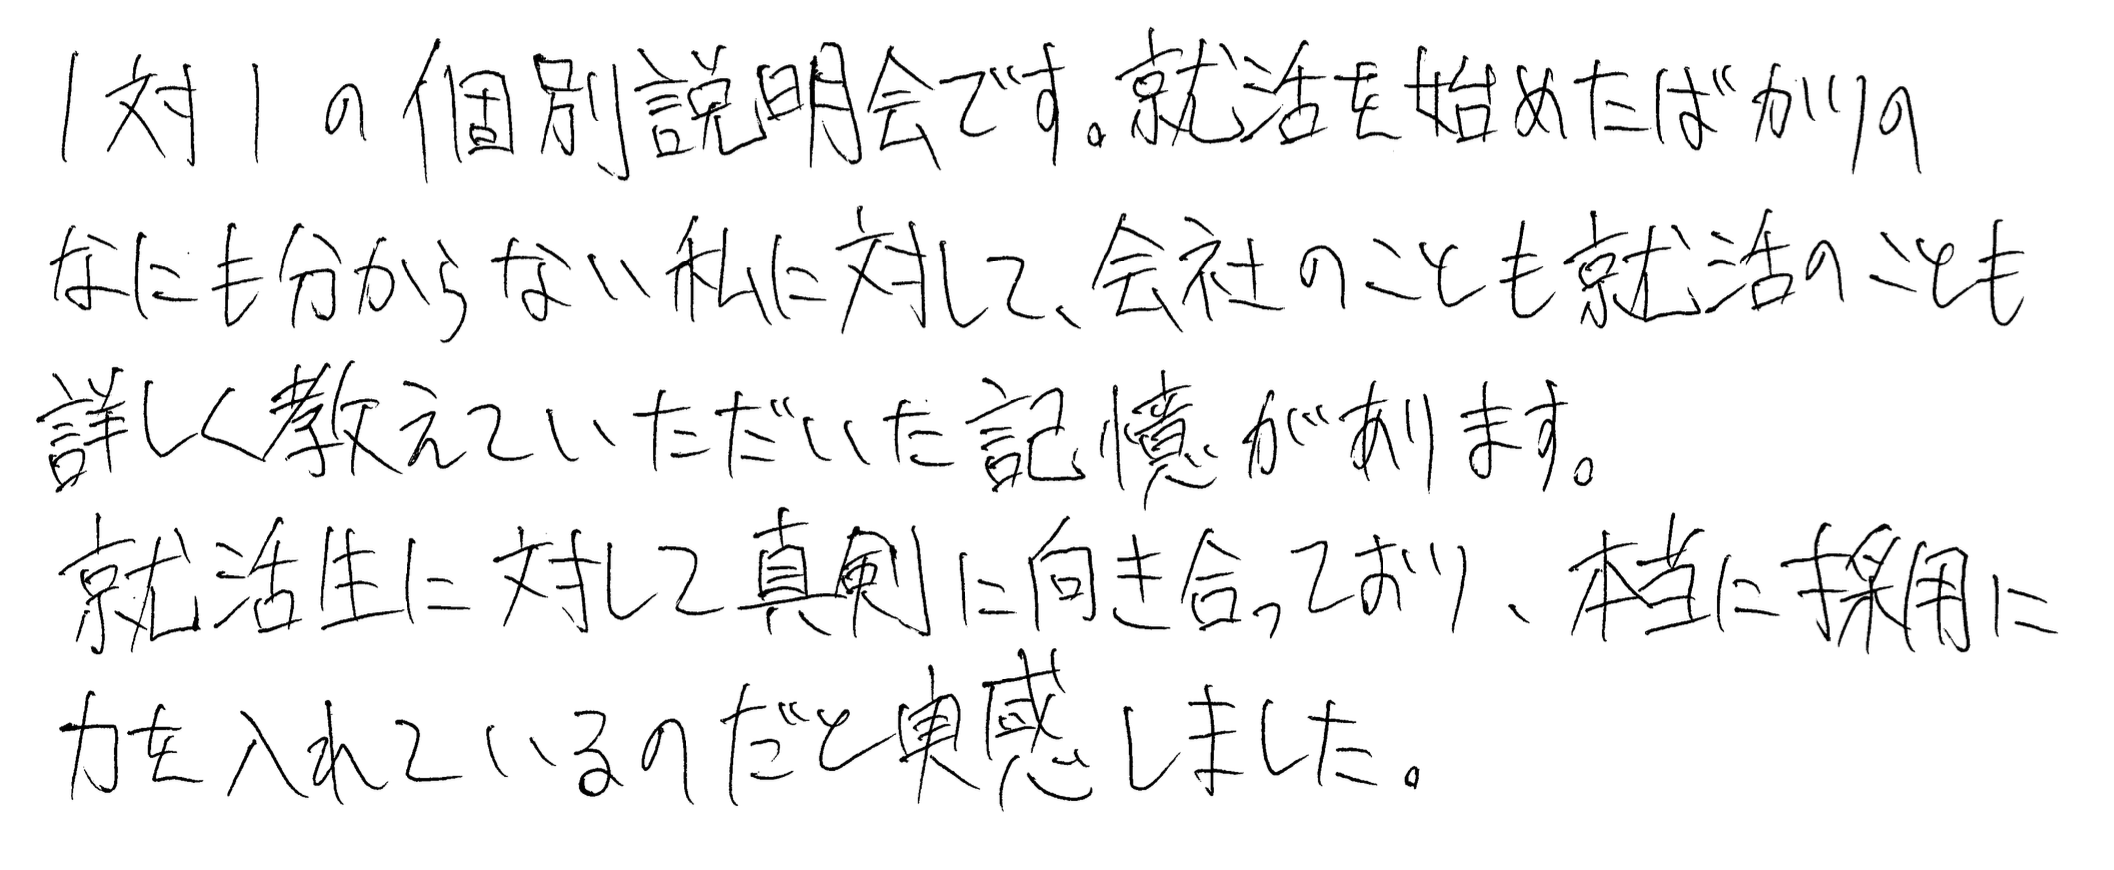 1対1の個別説明会です。就活を始めたばかりの
なにも分からない私に対して、会社のことも就活のことも
詳しく教えていただいた記憶があります。
就活生に対して真剣に向き合っており、本当に採用に
力を入れているのだと実感しました。